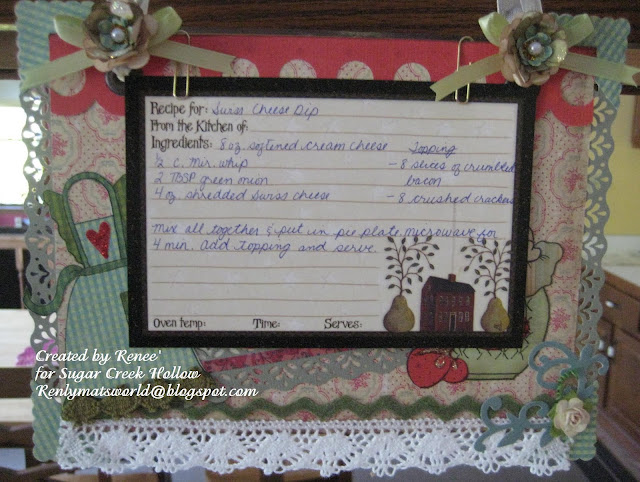 Recipe for: Swiss Cheese Dip
From the Kitchen of:
Ingredients: 8 oz. softened cream cheese Topping
2 TBSP green onion
4 oz shredded Swiss cheese
- 8 slices of crumbled
bacon
- 8 crushed crackers
Mix all together & put in pie plate. microwave for
4 min. add topping and serve.
Oven temp: Time: Serves:
Created by Renee'
for Sugar Creek Hollow
Renlymatsworld@blogspot.com